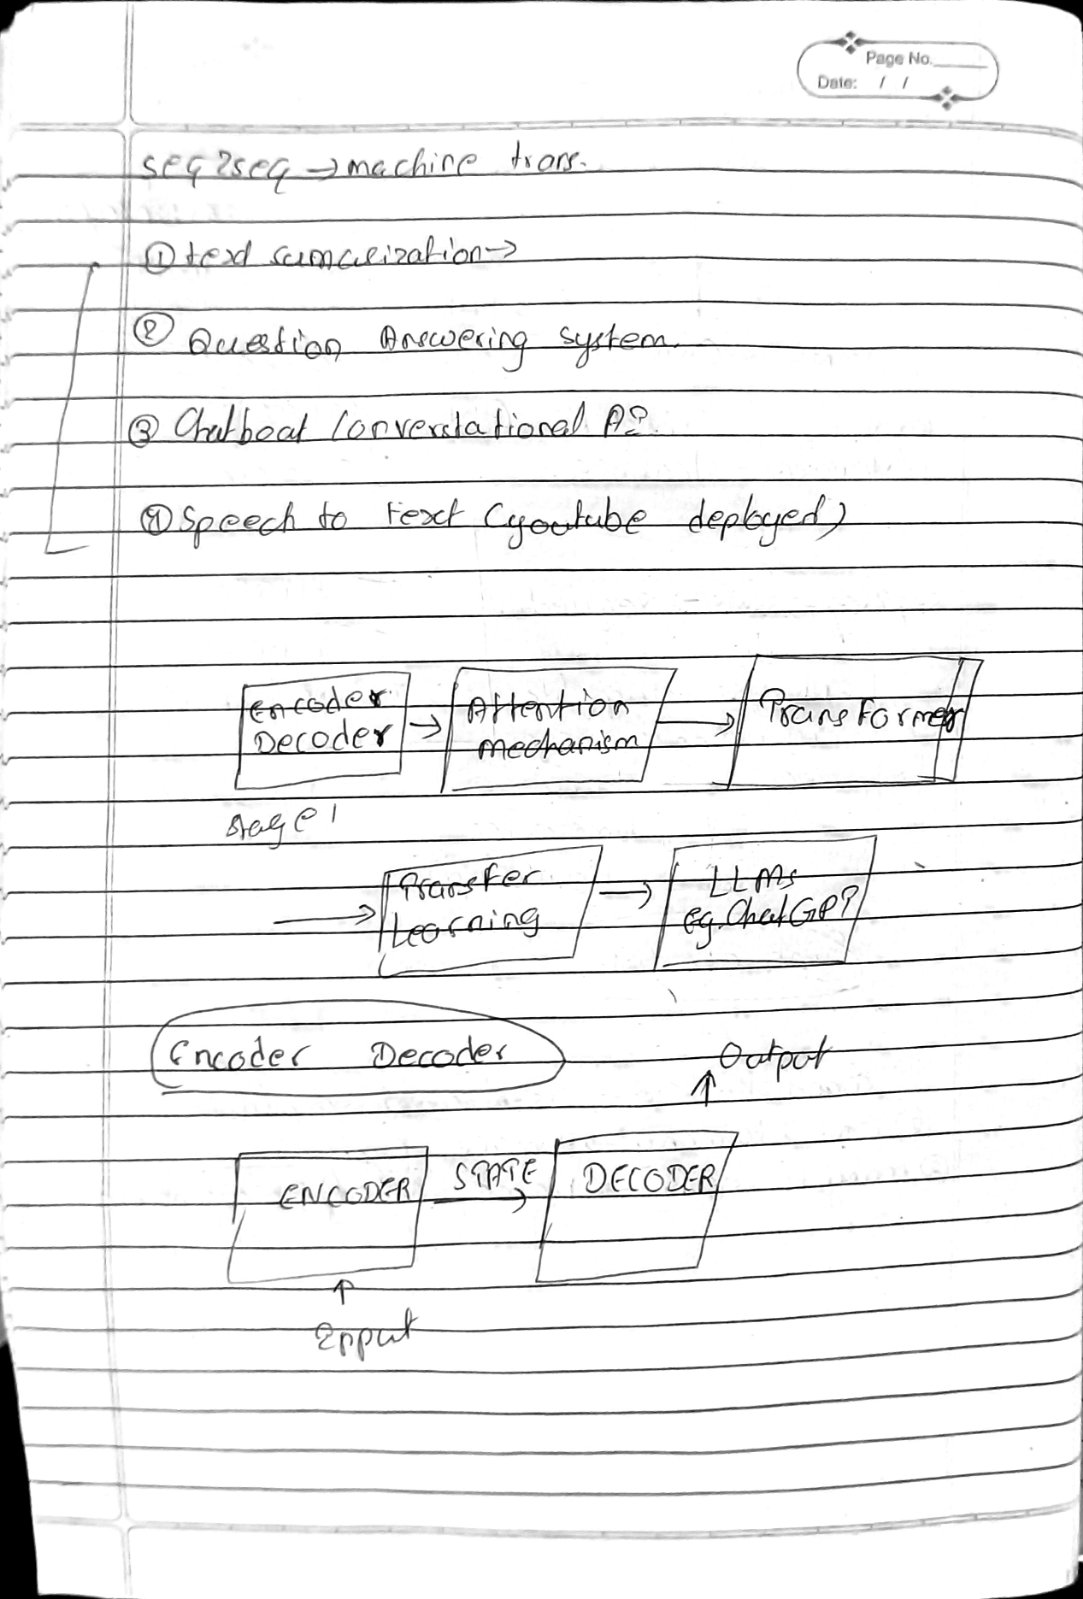 Page No.
Date: / /
seq2seq → machine trans.
① text sumarization →
② Question Answering system.
③ Chatboat Conversational AI.
④ Speech to text (youtube deployed)
Encoder Decoder → Attention mechanism → Transformer
Stage 1
→ Transfer Learning → LLMs eg. ChatGPT
Encoder Decoder
Output
ENCODER STATE → DECODER
Input